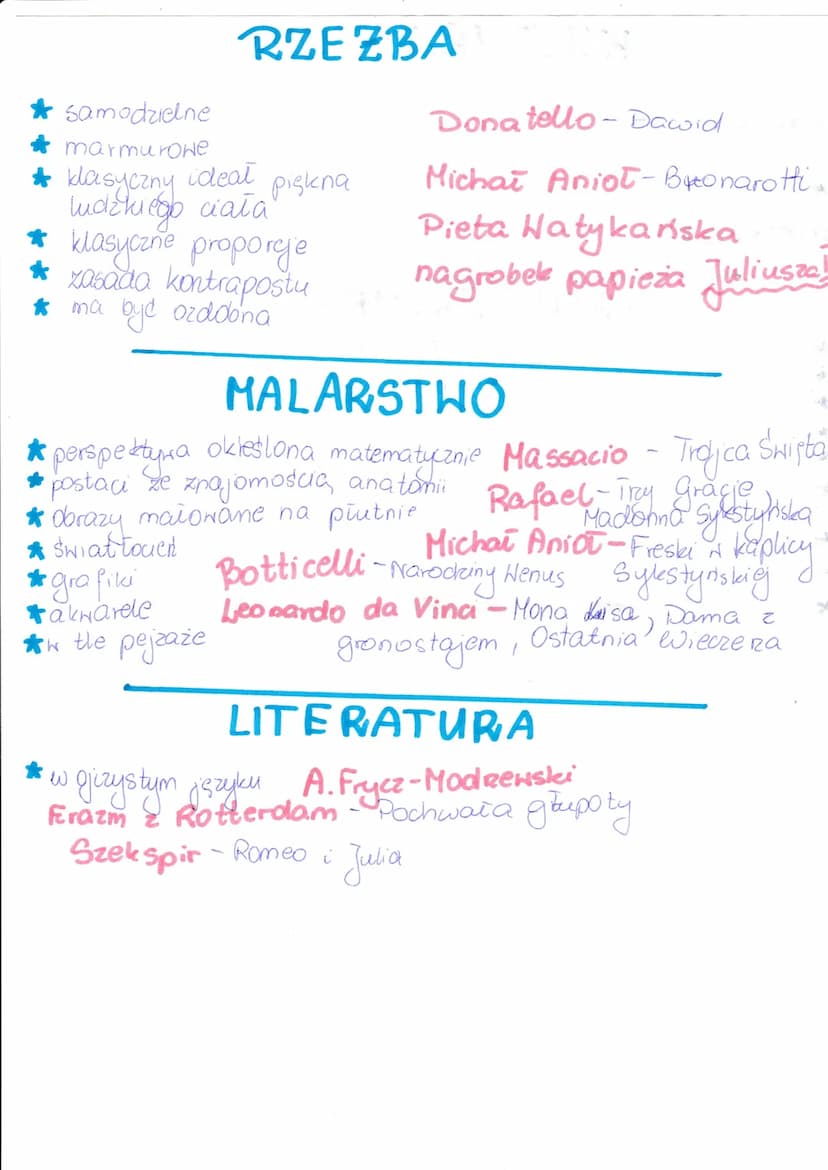 RZEŹBA
★ samodzielne
★ marmurowe
★ klasyczny ideał piękna
ludzkiego ciała
★ klasyczne proporcje
★ zasada kontrapostu
★ ma być ozdobna
Donatello - Dawid
Michał Anioł - Buonarotti
Pieta Watykańska
nagrobek papieża Juliusza!
MALARSTWO
★ perspektywa określona matematycznie
★ postaci ze znajomością anatomii
★ obrazy malowane na płutnie
★ światłocień
★ grafiki
★ akwarele
★ w tle pejzaże
Massacio - Trójca Święta
Rafael - Trzy gracje,
Madonna Sykstyńska
Michał Anioł - Freski w kaplicy
Sykstyńskiej
Botticelli - Narodziny Wenus
Leonardo da Vinci - Mona Lisa, Dama z
gronostajem, Ostatnia wieczerza
LITERATURA
★ w ojczystym języku A. Frycz-Modrzewski
Erazm z Rotterdam - Pochwała głupoty
Szekspir - Romeo i Julia